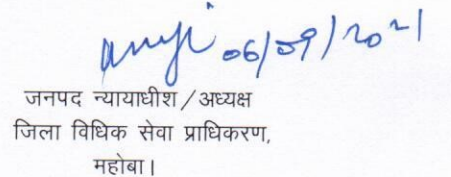 06/09/2021
जनपद न्यायाधीश/अध्यक्ष
जिला विधिक सेवा प्राधिकरण,
महोबा।